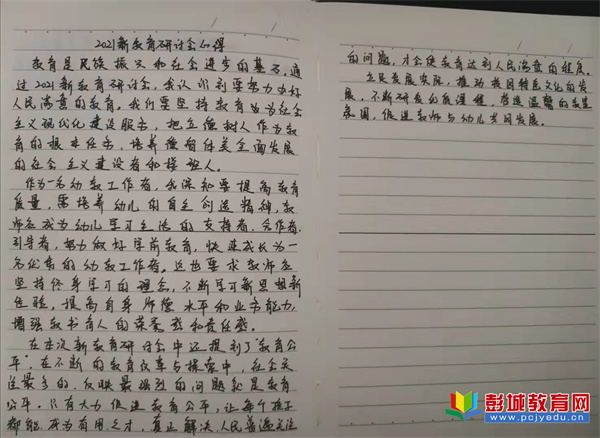 2021新教育研讨会心得
教育是民族振兴和社会进步的基石。通
过2021新教育研讨会，我认识到要努力办好
人民满意的教育。我们要坚持教育为社会
主义现代化建设服务，把立德树人作为教
育的根本任务，培养德智体美全面发展
的社会主义建设者和接班人。
作为一名幼教工作者，我深知要提高教育
质量，需培养幼儿的自主创造精神，教
师应成为幼儿学习生活的支持者、合作者、
引导者，努力做好学前教育，快速成长为一
名优秀的幼教工作者。这也要求教师应
坚持终身学习的理念，不断学习新思想新
经验，提高自身师德水平和业务能力，
增强教书育人的荣誉感和责任感。
在本次新教育研讨会中还提到了“教育公
平”，在不断的教育改革与探索中，社会关
注最多的、反映最强烈的问题就是教育
公平。只有大力促进教育公平，让每个孩子
都能成为有用之才，真正解决人民普遍关注
的问题，才会使教育达到人民满意的程度。
立足发展实际，推动校园特色文化的发
展，不断研发的课程，营造温馨的教室
氛围，促进教师与幼儿共同发展。
彭城教育网
www.pcjyedu.cn